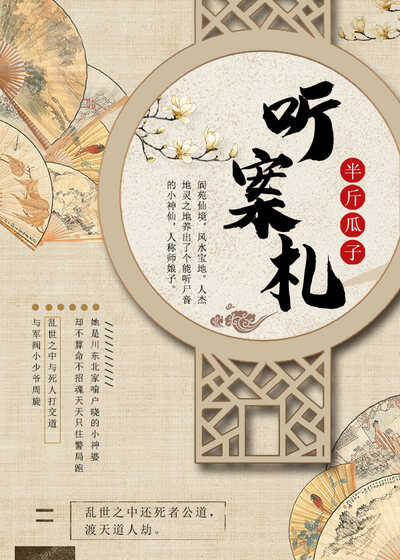 听案札
半斤瓜子
阆苑仙境，风水宝地。人杰
地灵之地养出了个能听尸音
的小神仙，人称师娘子。
她是川东北家喻户晓的小神婆
却不算命不招魂天天只往警局跑
乱世之中与死人打交道
与军阀小少爷周旋
乱世之中还死者公道，
渡天道人劫。